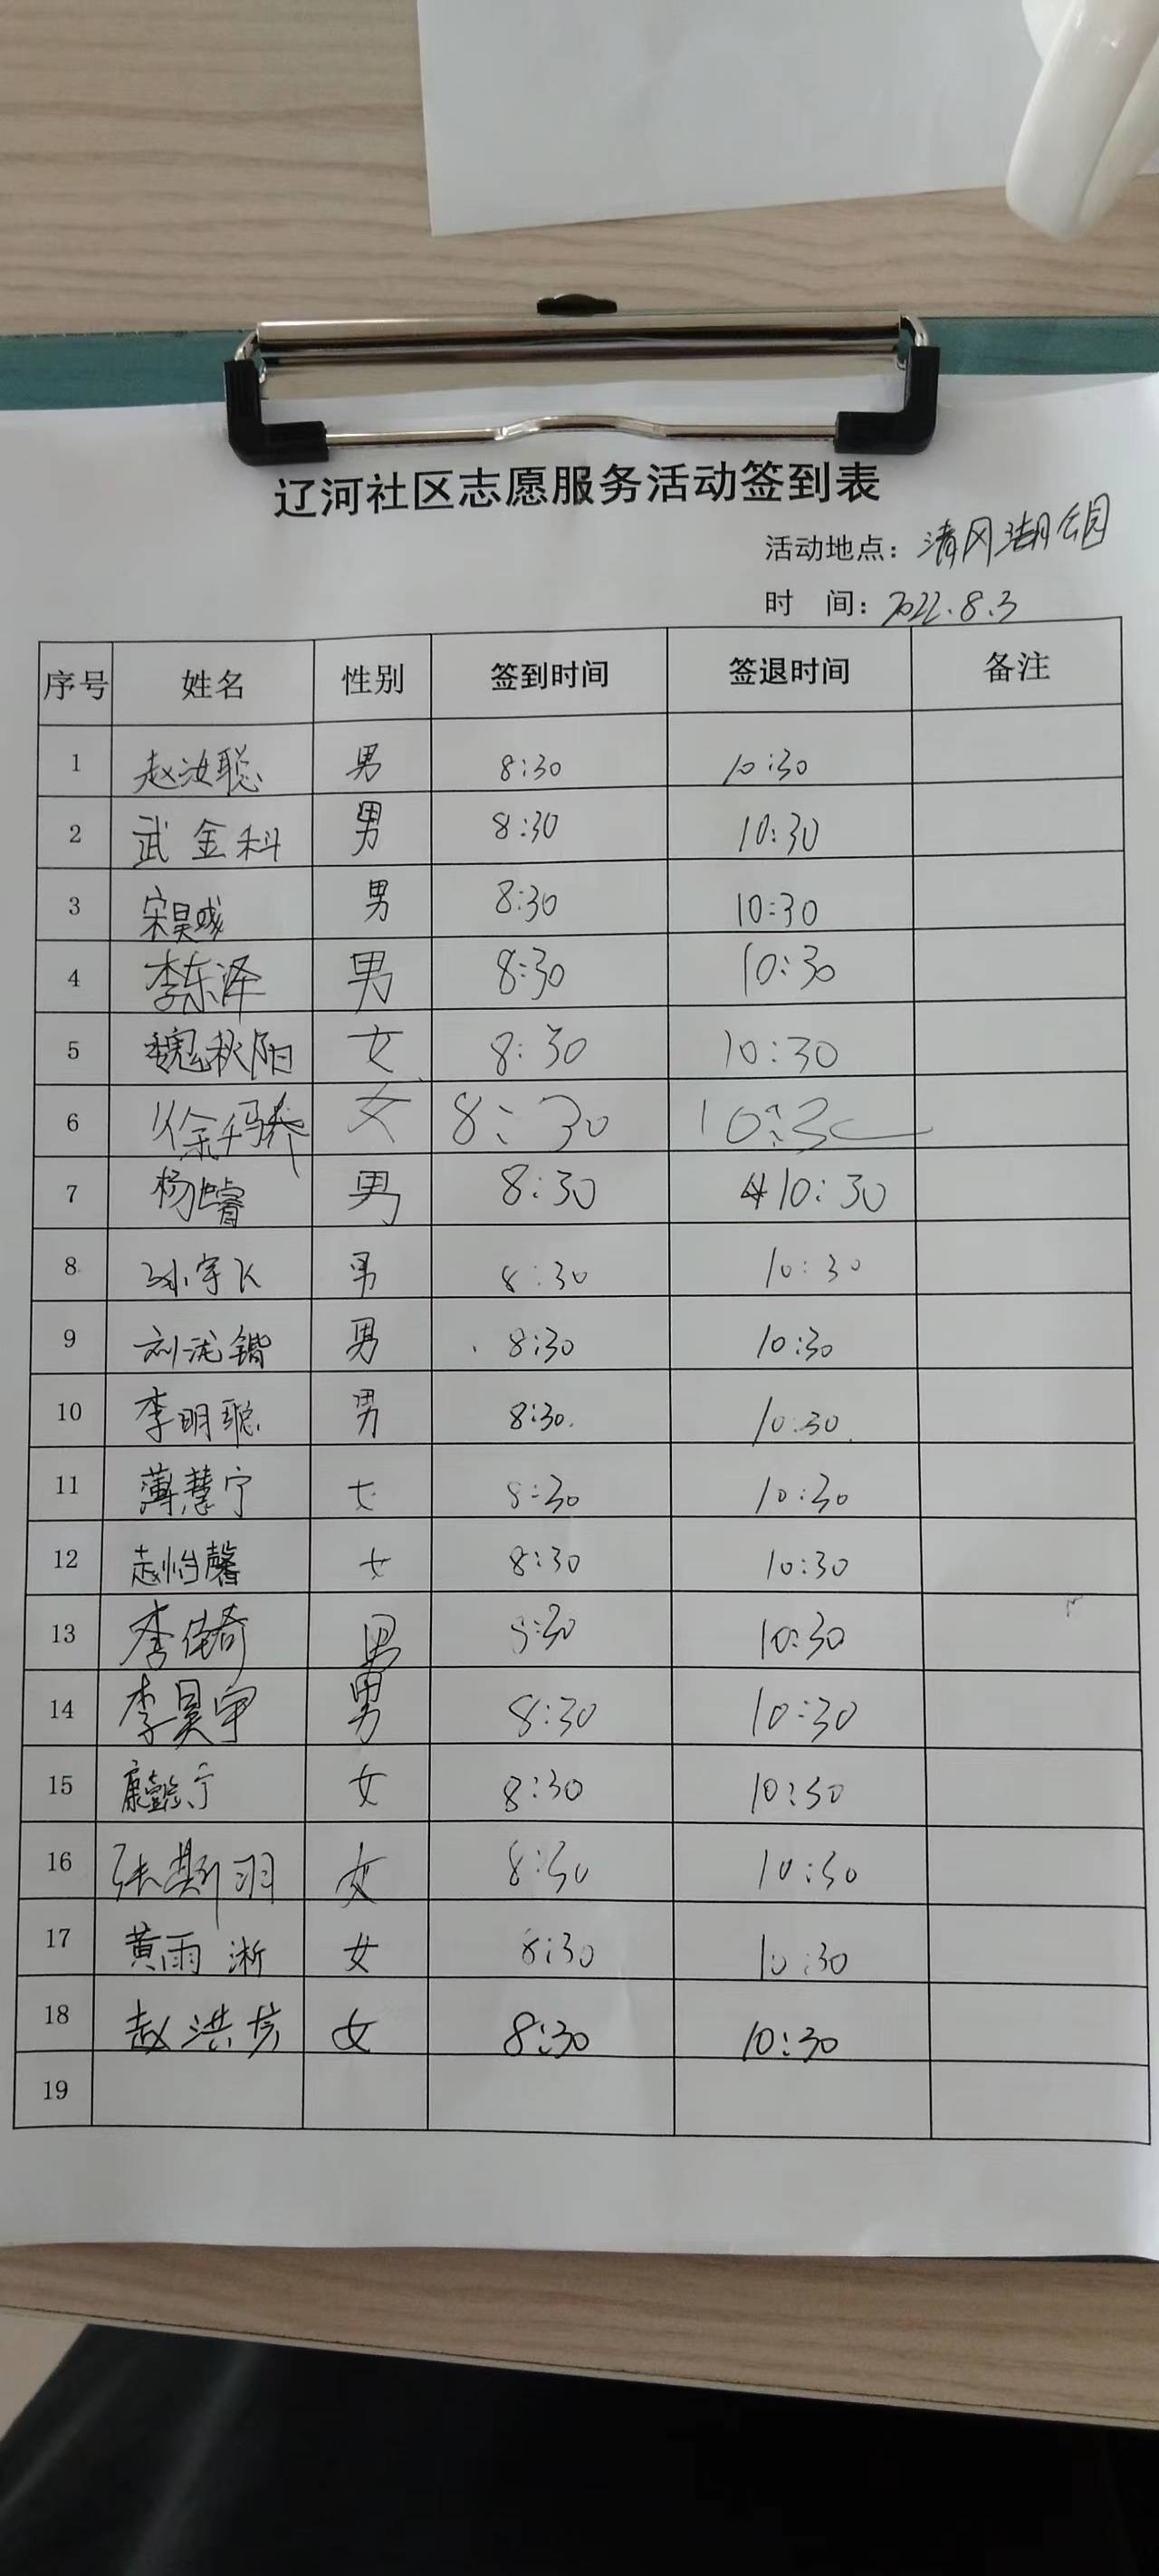 辽河社区志愿服务活动签到表
活动地点：清风湖公园
时 间：2022.8.3
序号 姓名 性别 签到时间 签退时间 备注
1 赵汝聪 男 8:30 10:30
2 武金科 男 8:30 10:30
3 宋昊 男 8:30 10:30
4 李东泽 男 8:30 10:30
5 魏秋阳 女 8:30 10:30
6 徐 女 8:30 10:30
7 杨 男 8:30 10:30
8 孙宇飞 男 8:30 10:30
9 刘泷锴 男 8:30 10:30
10 李明聪 男 8:30 10:30
11 薄慧宁 女 8:30 10:30
12 赵怡馨 女 8:30 10:30
13 李 男 8:30 10:30
14 李昊宇 男 8:30 10:30
15 康懿宁 女 8:30 10:30
16 张斯羽 女 8:30 10:30
17 黄雨淅 女 8:30 10:30
18 赵洪 女 8:30 10:30
19